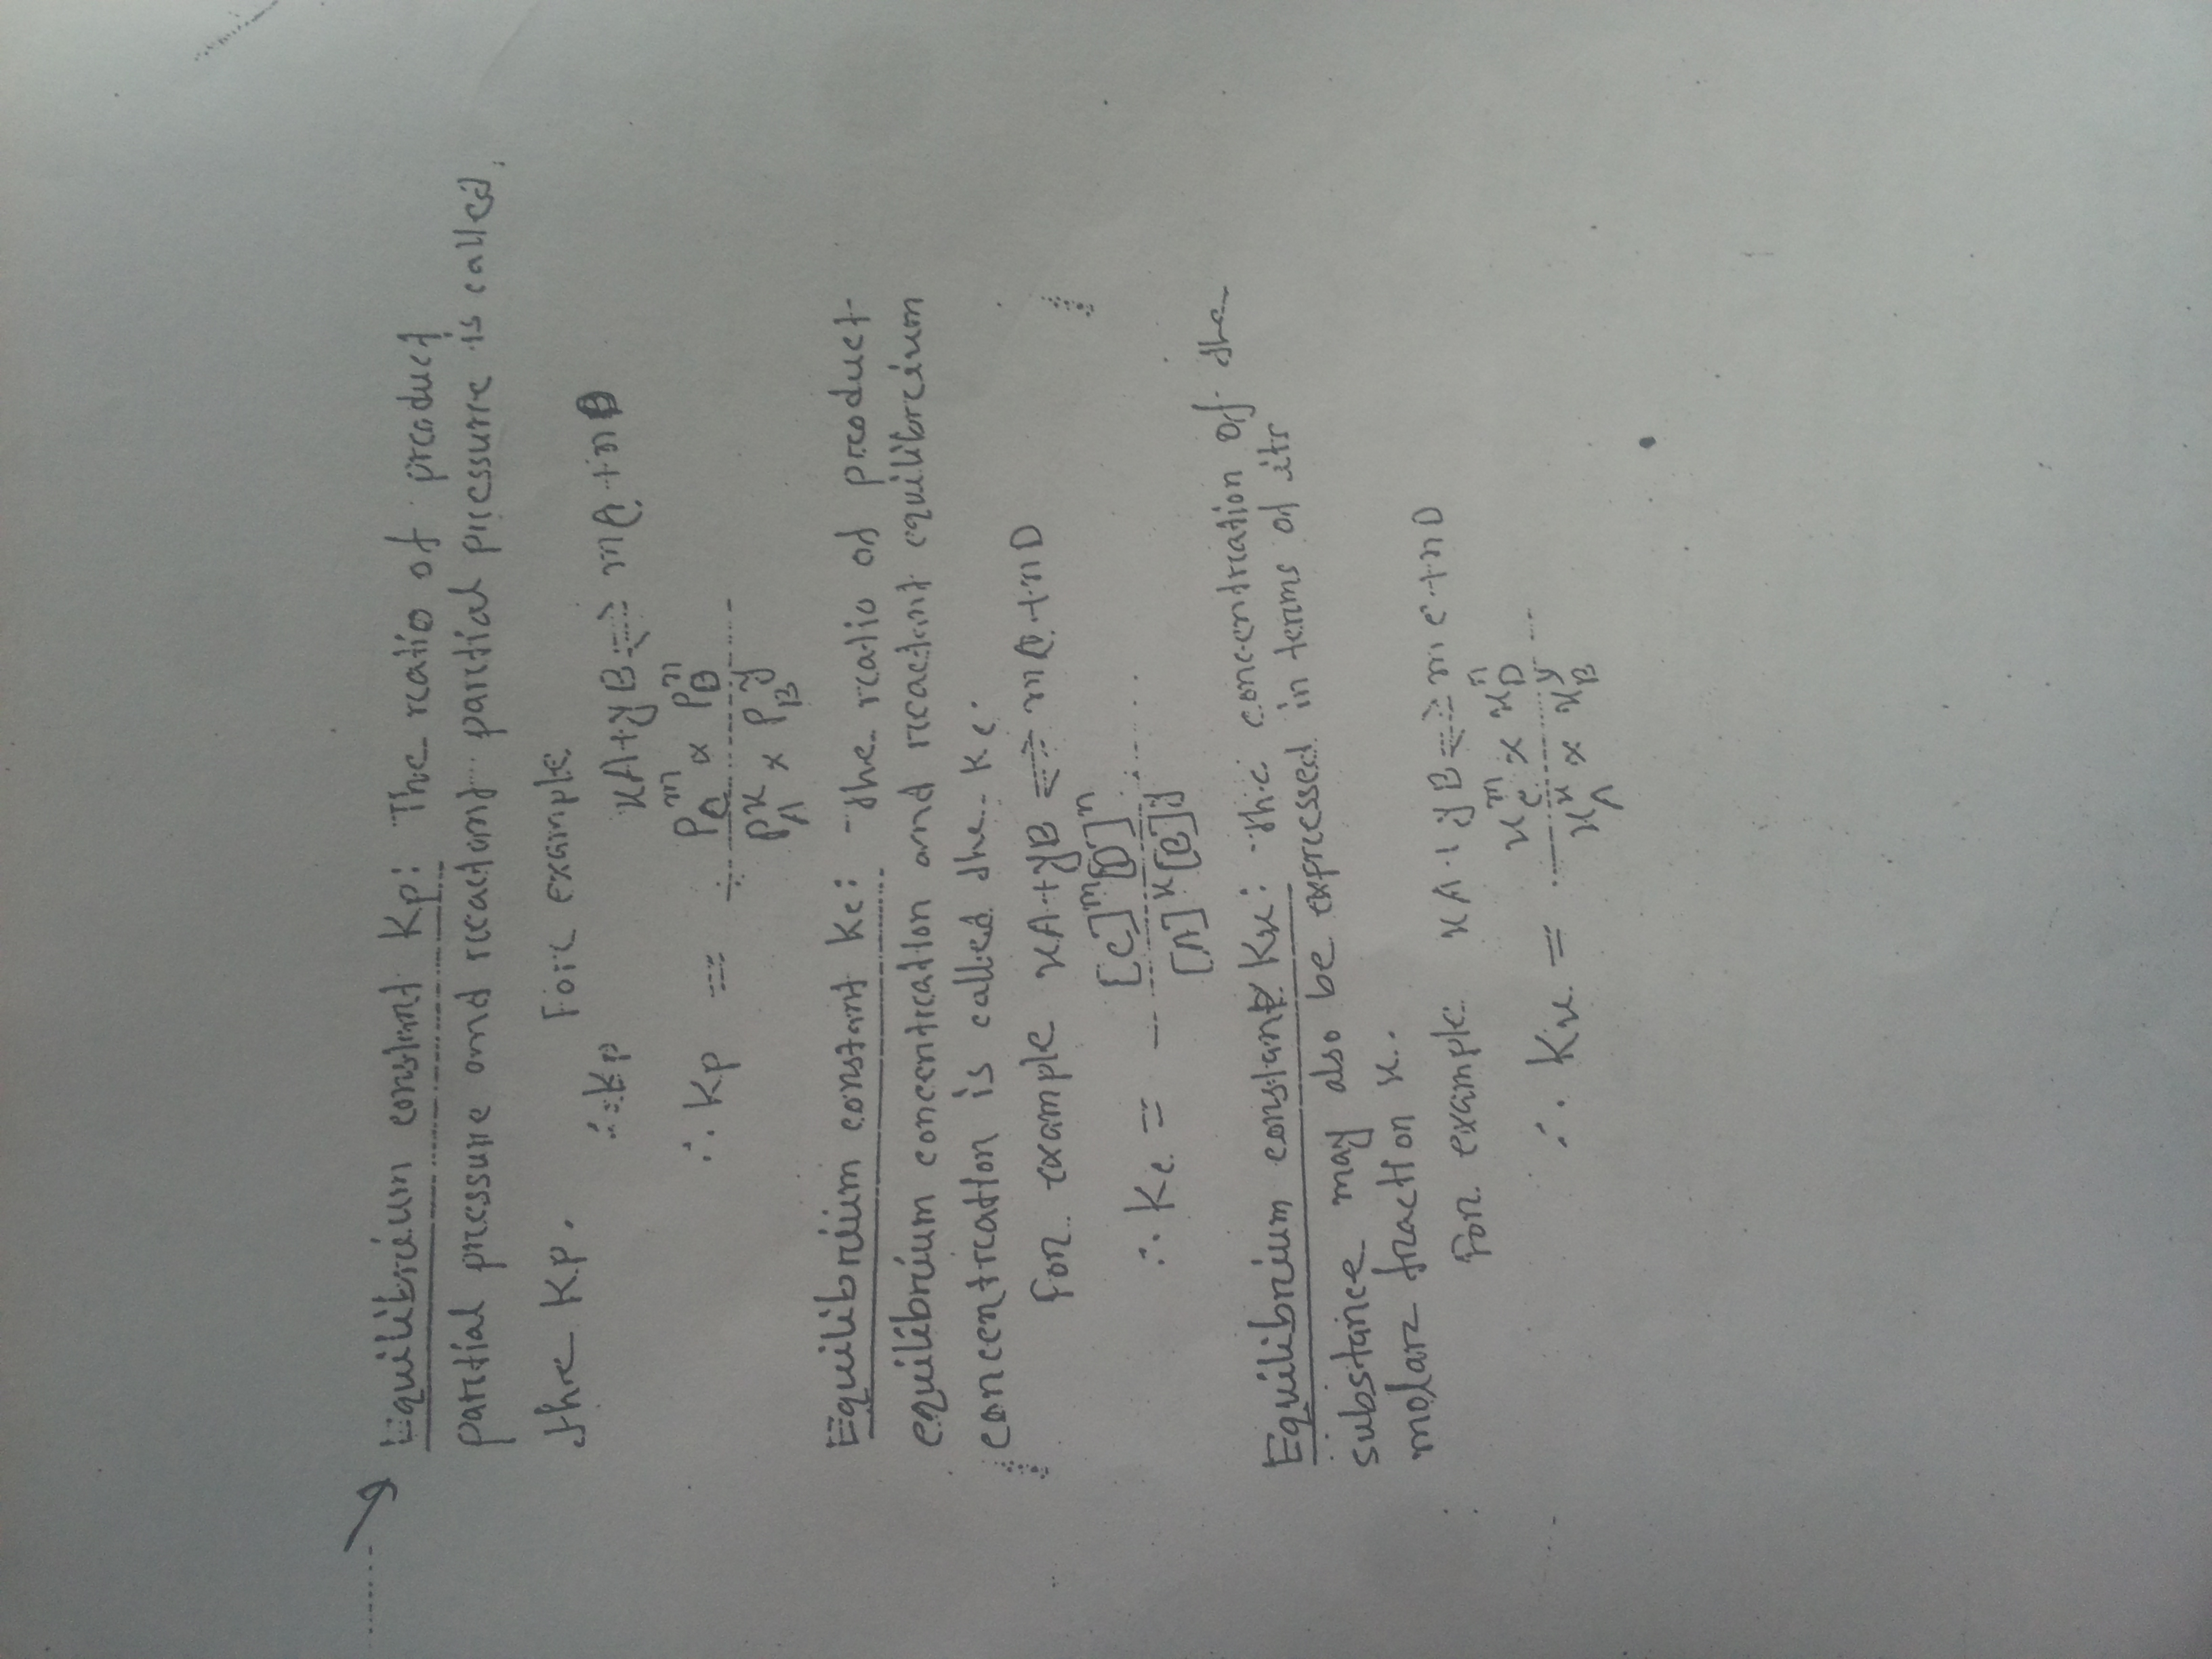 Equilibrium constant Kp: The ratio of product
partial pressure and reactant partial pressure is called
the Kp. For example
∴ Kp xA+yB ⇌ mC+nD
∴ Kp = P_C^m × P_D^n / P_A^x × P_B^y
Equilibrium constant Kc: The ratio of product
equilibrium concentration and reactant equilibrium
concentration is called the Kc.
For example xA+yB ⇌ mC+nD
∴ Kc = [C]^m [D]^n / [A]^x [B]^y
Equilibrium constant Kx: The concentration of the
substance may also be expressed in terms of its
molar fraction x.
For example xA+yB ⇌ mC+nD
∴ Kx = x_C^m × x_D^n / x_A^x × x_B^y